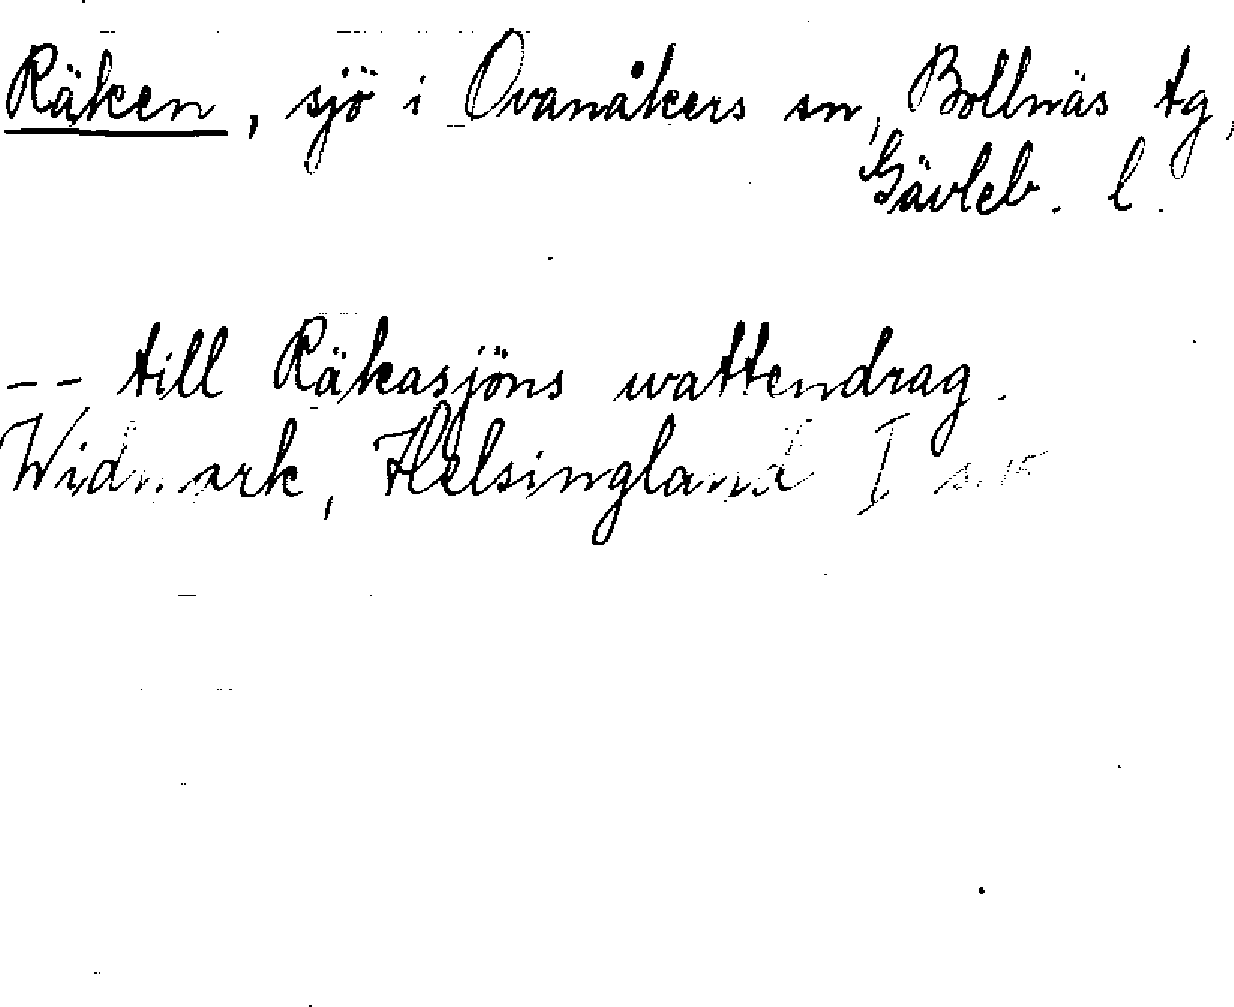 Räken, sjö i Ovanåkers sn, Bollnäs tg,
Gävleb. l.
-- till Räkasjöns wattendrag.
Widmark, Helsingland I s. 15